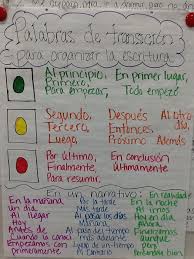 Palabras de transición
para organizar la escritura
Al principio, En primer lugar,
Primero,
Para empezar, Todo empezó
Segundo, Después Al otro
Tercero, Entonces día
Luego, Próximo Además
Por último, En conclusión
Finalmente Últimamente
Para resumir
En un narrativo:
En la mañana Por la tarde En realidad
un día Más tarde En la noche
Al llegar Al pasar los días
Hoy Mientras Hoy en día
Antes de Ahora
Cuando Finalmente
Empezamos con aunque
primeramente